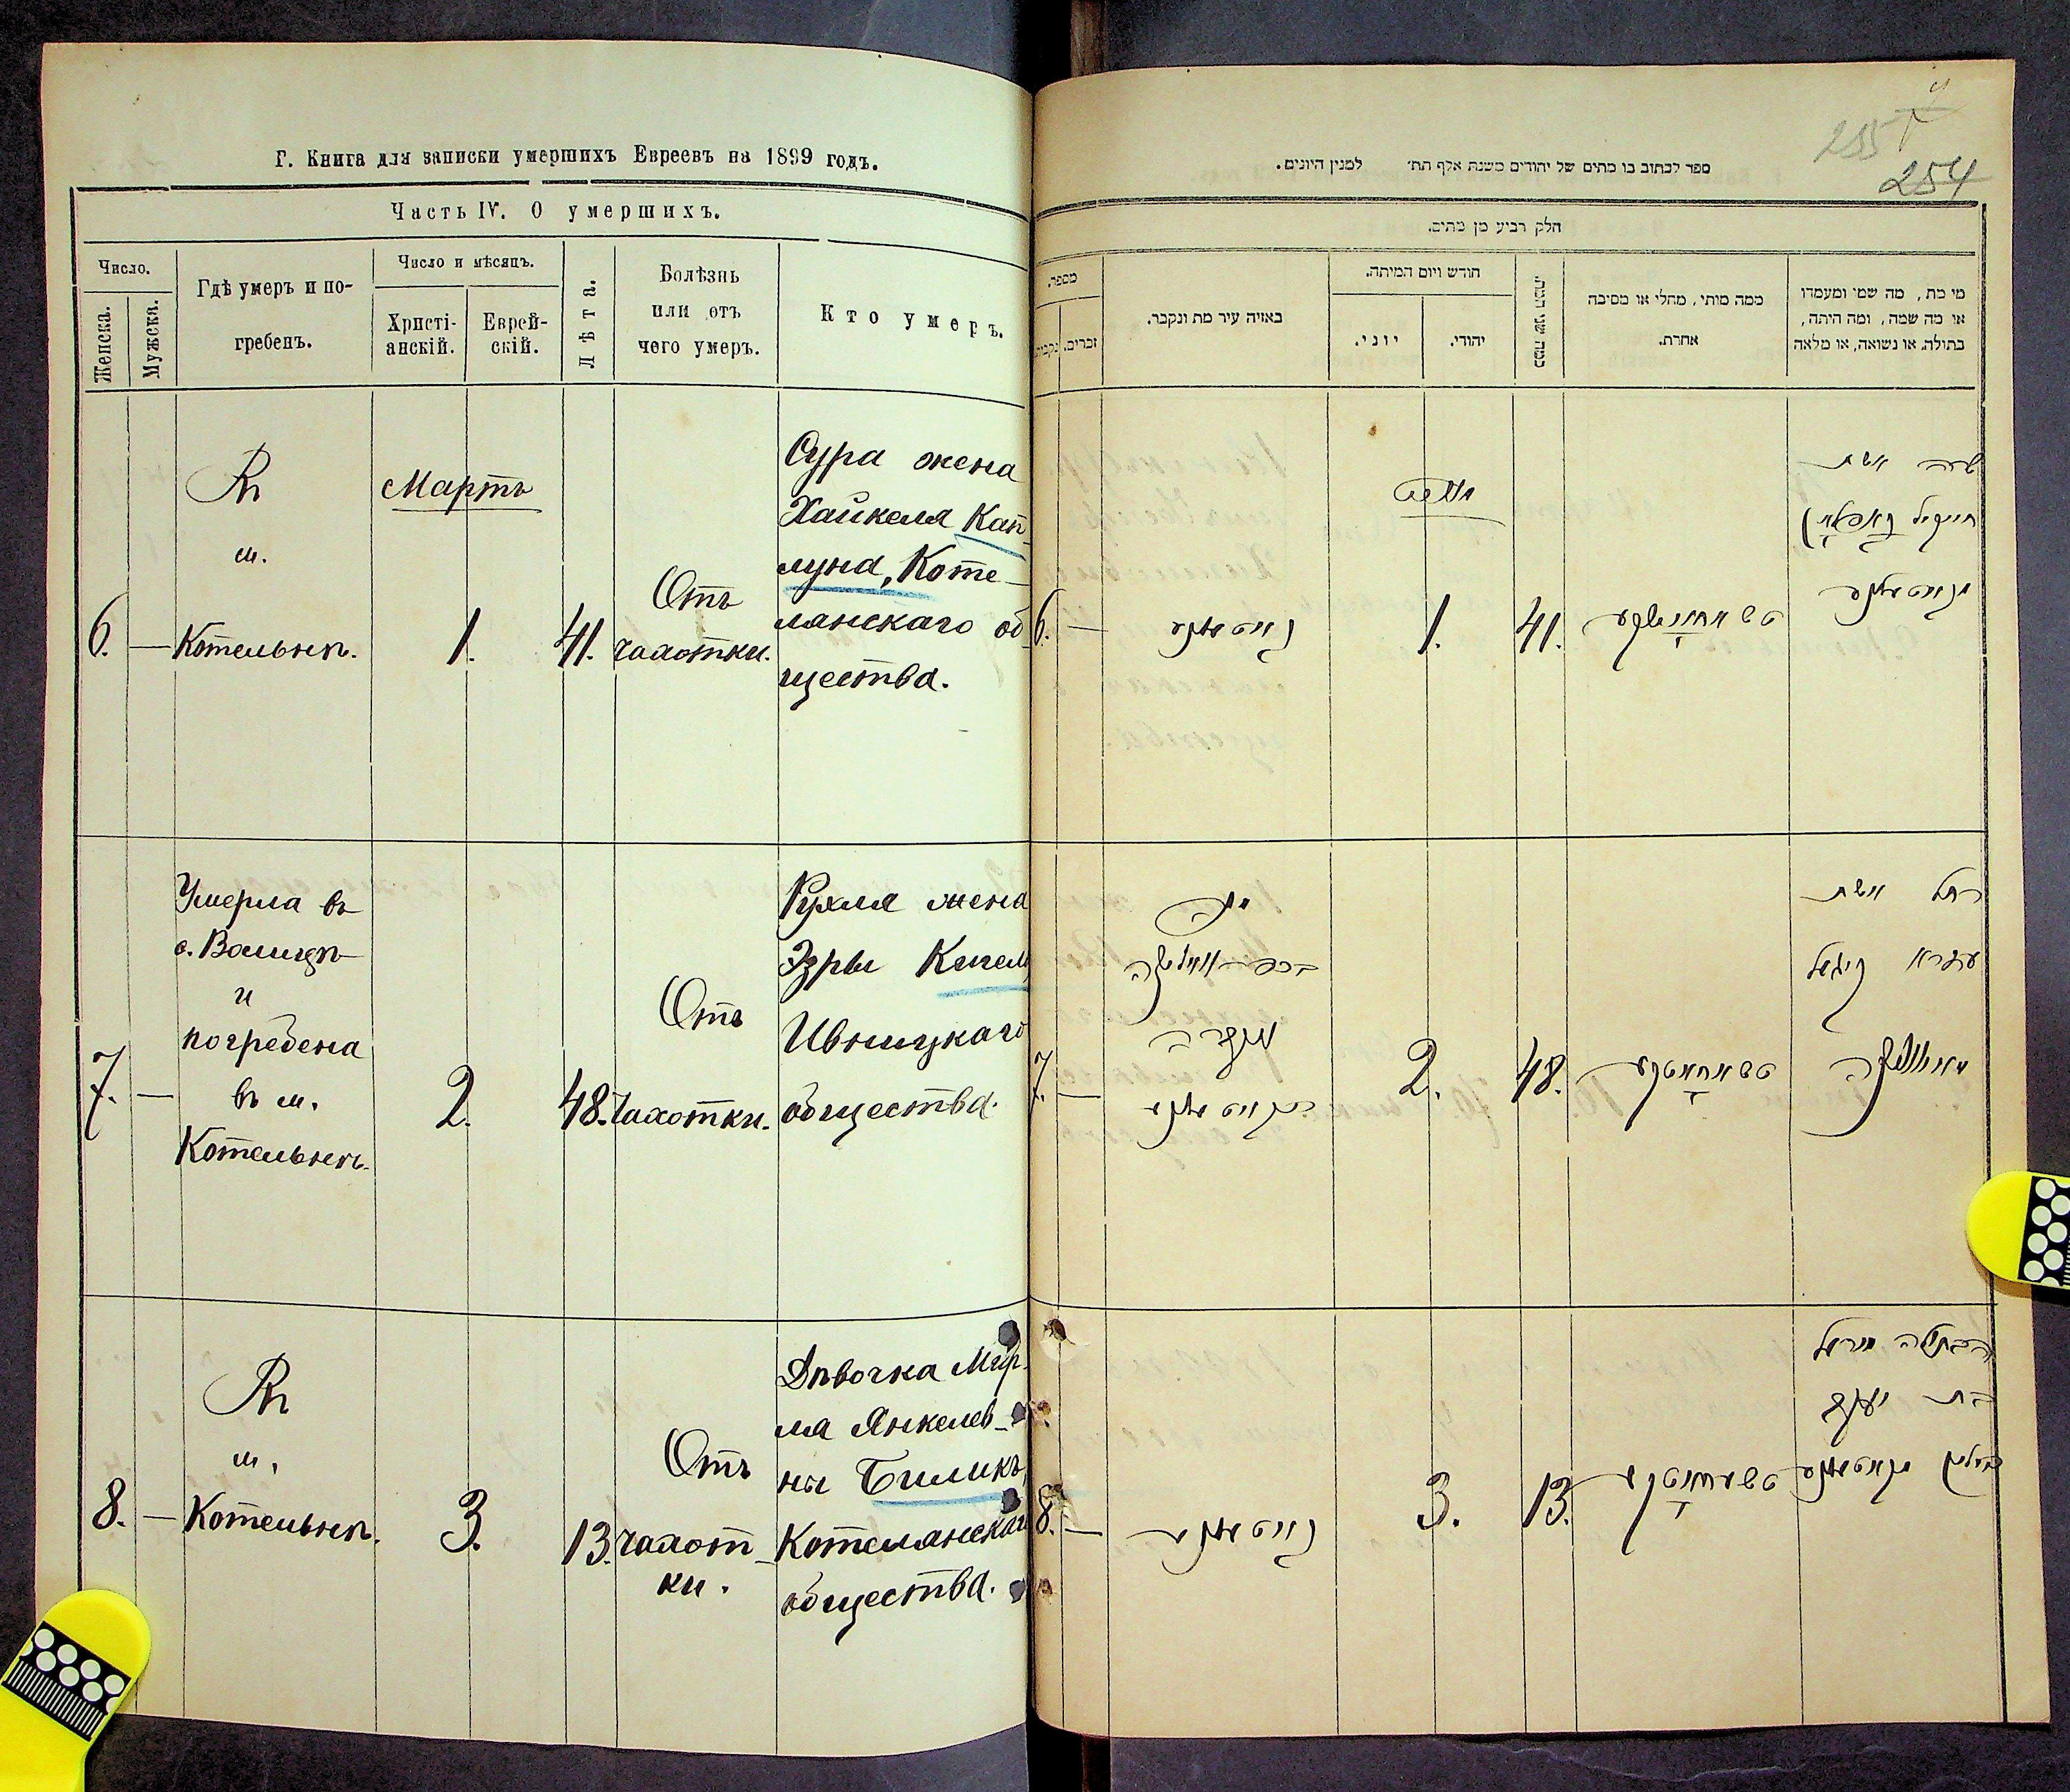 Г. Книга для записки умершихъ Евреевъ на 1899 годъ.
Часть IV. О умершихъ.
Число.
Женска.
Мужска.
Гдѣ умеръ и по-
гребенъ.
Число и мѣсяцъ.
Христі-
анскій.
Еврей-
скій.
Лѣта.
Болѣзнь
или отъ
чего умеръ.
Кто умеръ.
6.
—
Въ
м.
Котельнѣ.
Мартъ
1.
41.
Отъ
чахотки.
Сура жена
Хайкеля Кап-
луна, Коте-
лянскаго об-
щества.
7.
—
Умерла въ
с. Волицѣ
и
погребена
въ м.
Котельнѣ.
2.
48.
Отъ
чахотки.
Рухля жена
Эзры Кигель
Ивницкаго
общества.
8.
—
Въ
м.
Котельнѣ.
3.
13.
Отъ
чахот-
ки.
Дѣвочка Мир-
ля Янкелев-
ны Биликъ,
Котелянскаго
общества.
255
254
ספר לכתוב בו מתים של יהודים משנת אלף תת׳ למנין היונים.
חלק רביע מן מתים.
מספר.
נקבות
זכרים.
באיזה עיר מת ונקבר.
חודש ויום המיתה.
יוני.
יהודי.
כמה שני חייו.
ממה מותו, מחלי או מסיבה
אחרת.
מי מת, מה שמו ומעמדו
או מה שמה, ומה היתה,
בתולה, או נשואה, או מלאה
6.
—
1.
41.
שרה אשת
חייקיל קאפלון
7.
—
2.
48.
רחל אשת
עזרא קיגעל
8.
—
3.
13.
בת יעקב